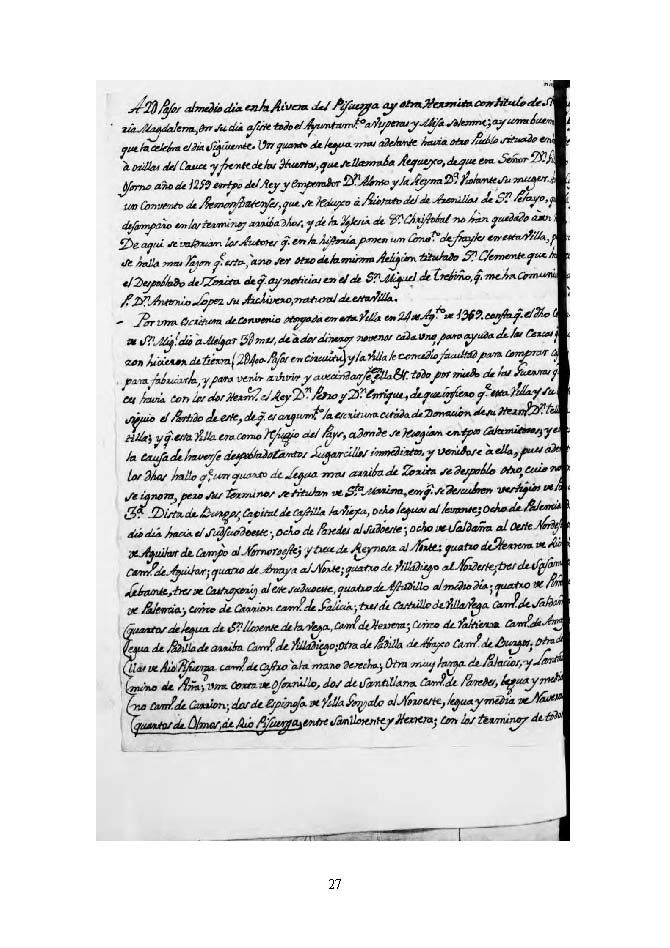 A 20 Pasos al medio dia en la Rivera del Pisuerga ay otra Hermita con titulo de
ria Magdalena, en su dia asiste todo el Ayuntam.to a Visperas y Misa solemne; ay una buen
que la celebra el dia siguiente. Un quarto de legua mas adelante havia otro Pueblo situado en
à orillas del Cauce y frente de las Huertas, que se llamaba Requexo, de que era Señor D.n
Osorno año de 1259 en tpo del Rey y Emperador D.n Alonso y la Reyna D.a Violante su muger.
un Convento de Premonstratenses, que se reduxo à Priorato del de Arenillas de S.n Pelayo,
desamparo en los terminos arriba dhos, y de la Iglesia de S.n Christobal no han quedado aun
De aqui se valdrian los Autores q.e en la historia ponen un Conv.to de frayles en esta Villa,
se halla mas razon q.e esta, a no ser otro de la misma Religion titulado S.n Clemente que
el Despoblado de Zorita de q.e ay noticias en el de S.n Miguel de Trebiño, q.e me ha Comunica
P. D.n Antonio Lopez su Archivero, natural de esta Villa.
- Por una Escritura de convenio otorgada en esta Villa en 24 de Ag.to de 1369. consta q.e el dho
de S.n Mig.l dió a Melgar 30 mrs, de a dos dineros novenos cada uno, para ayuda de las Cercas
zon hicieron de tierra, (2040 Pasos en circuito) y la Villa le comedio facultad para comprar
para fabricarla, y para venir a vivir y avecindarse en ella &c. todo por miedo de las Guerras q
ces havia con los dos Herm.s el Rey D.n Pedro y D.n Enrique, de que infiero q.e esta Villa y su
siguio el Partido de este, de q.e es argum.to la escritura citada de Donacion de su Herm.o D.n Tell
tilla; y q.e esta Villa era como refugio del Pays, adonde se recogian en tpos Calamitosos; y
la causa de haverse despoblado tantos Lugarcillos inmediatos, y venidose à ella, pues
los dhos hallo q.e un quarto de Legua mas arriba de Zorita se despoblo otro, cuio no
se ignora, pero sus terminos se titulan de S.ta Marina, en q.e se descubren vestigios de
3.a Dista de Burgos, Capital de Castilla la Viexa, ocho leguas al levante; Ocho de Palencia
dio dia hacia el sudsudoeste; ocho de Paredes al Sudoeste; ocho de Saldaña al Oeste Nordes
de Aguilar de Campo al Nornoroeste; y trece de Reynosa al Norte: quatro de Herrera de Rio
cam.o de Aguilar; quatro de Amaya al Norte; quatro de Villadiego al Nordeste; tres de Sasam
Lebante, tres de Castroxeriz al este sudueste, quatro de Astudillo al medio dia; quatro de
de Palencia; cinco de Carrion cam.o de Galicia; tres de Castrillo de Villa Vega Cam.o de Saldañ
quartos de legua de S.n Llorente de la Vega, cam.o de Herrera; Cinco de Valtierra Cam.o de Ama
legua de Padilla de arriba Cam.o de Villadiego; otra de Padilla de Abaxo Cam.o de Burgos; Otra de
llas de Rio Pisuerga cam.o de Castro à la mano derecha; Otra muy larga de Palacios, y
mino de Aña; una corta de Osornillo, dos de Santillana Cam.o de Paredes, legua y media
no cam.o de Carrion; dos de Espinosa de Villa Gonzalo al Noroeste, legua y media de Naveros
quartos de Olmos, de Rio Pisuerga, entre Sanllorente y Herrera; con los terminos de todos
27